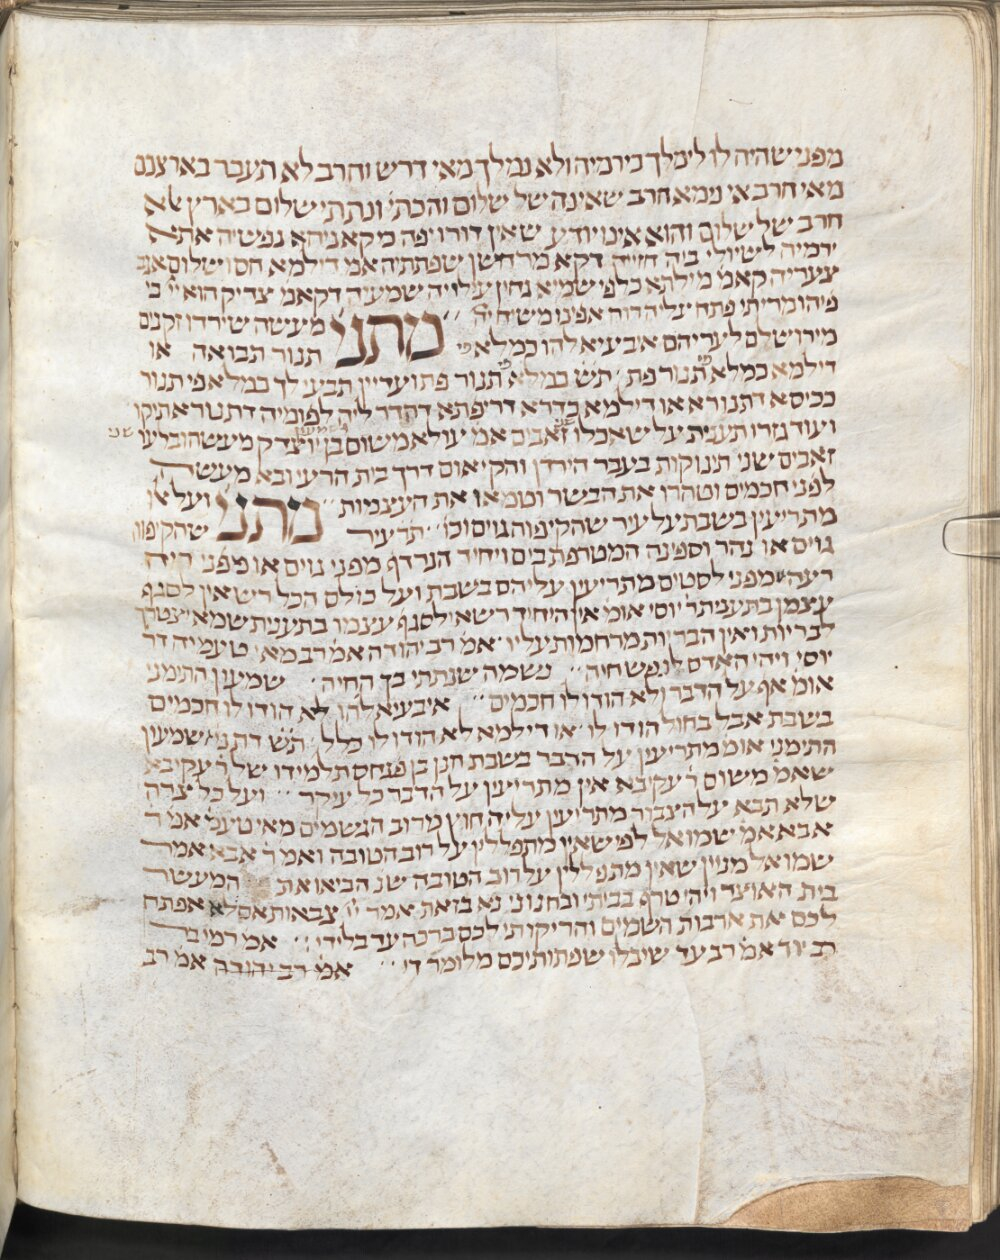 מפני שהיה לו לימלך בירמיה ולא נמלך מאי דריש וחרב לא תעבר בארצכם
מאי חרב אי נימא חרב שאינה של שלום והכת׳ ונתתי שלום בארץ אלא
חרב של שלום והוא אינו יודע שאין דורו יפה מקא ניהא נפשיה אתא
ירמיה לשיולי ביה חזייה דקא מרחשן שפתתיה אמ׳ דילמא חס ושלום אגב
צעריה קאמ׳ מילתא כלפי שמיא גחין עילוייה שמעיה דקאמ׳ צדיק הוא יי׳ כי
פיהו מריתי פתח עליה רוח אפינו משיח יי׳ מתני׳ מעשה שירדו זקנים
מירושלם לעריהם איבעיא להו כמלא פי תנור תבואה או
דילמא כמלא תנור פת ת״ש כמלא פי תנור פת ועדיין תבעי לך כמלא פי תנור
ככיסא דתנורא או דילמא כדרא דריפתא דהדר ליה לפומיה דתנורא תיקו
ועוד גזרו תענית על שאכלו זאבים אמ׳ עולא משום ר׳ שמעון בן יוצדק מעשה ובלעו שני
זאבים שני תינוקות בעבר הירדן והקיאום דרך בית הרעי ובא מעשה
לפני חכמים וטהרו את הבשר וטמאו את העצמות מתני׳ ועל אלו
מתריעין בשבת על עיר שהקיפוה גוים וכו׳ ת״ר עיר שהקיפוה
גוים או נהר וספינה המטרפת בים ויחיד הנרדף מפני גוים או מפני רוח
רעה מפני לסטים מתריעין עליהם בשבת ועל כולם הכל רשאין לסגף
עצמן בתענית ר׳ יוסי אומ׳ אין היחיד רשאי לסגף עצמו בתענית שמא יצטרך
לבריות ואין הבריות מרחמות עליו אמ׳ רב יהודה אמ׳ רב מאי טעמיה דר׳
יוסי ויהי האדם לנפש חיה נשמה שנתתי בך החיה שמעון התימני
אומ׳ אף על הדבר ולא הודו לו חכמים איבעיא להו לא הודו לו חכמים
בשבת אבל בחול הודו לו או דילמא לא הודו לו כלל ת״ש דתניא שמעון
התימני אומ׳ מתריעין על הדבר בשבת חנן בן פנחס תלמידו של ר׳ עקיבא
שאמ׳ משום ר׳ עקיבא אין מתריעין על הדבר כל עיקר ועל כל צרה
שלא תבא על הציבור מתריעין עליה חוץ מרוב הגשמים מאי טעמ׳ אמ׳ ר׳
אבא אמ׳ שמואל לפי שאין מתפללין על רוב הטובה ואמ׳ ר׳ אבא אמר
שמואל מניין שאין מתפללין על רוב הטובה שנ׳ הביאו את המעשר
בית האוצר ויהי טרף בביתי ובחנוני נא בזאת אמר יי׳ צבאות אם לא אפתח
לכם את ארבות השמים והריקותי לכם ברכה עד בלי די אמ׳ רמי בר
רב יוד אמ׳ רב עד שיבלו שפתותיכם מלומר די אמ׳ רב יהודה אמ׳ רב